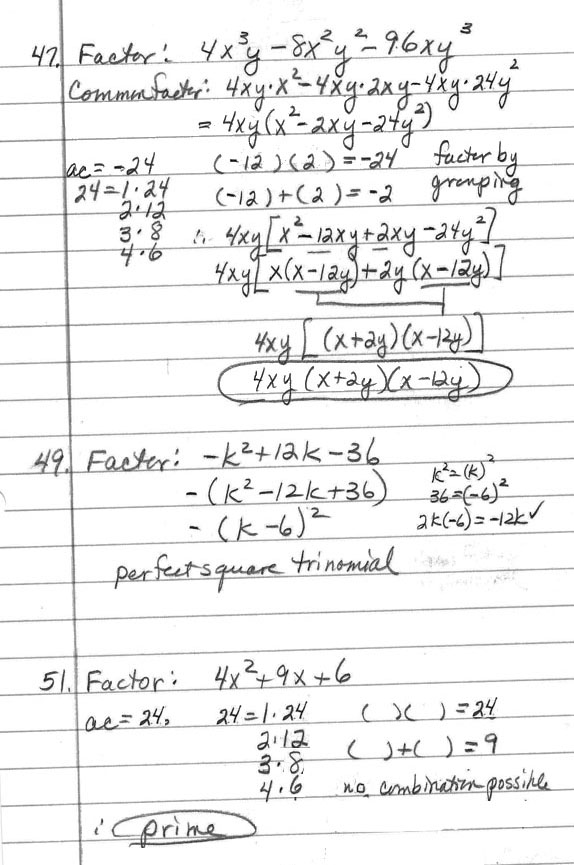 47. Factor: 4x³y - 8x²y² - 96xy³
Common factor: 4xy·x² - 4xy·2xy - 4xy·24y²
= 4xy(x² - 2xy - 24y²)
ac = -24 (-12)(2) = -24 factor by
24 = 1·24 (-12)+(2) = -2 grouping
2·12
3·8 ∴ 4xy[x² - 12xy + 2xy - 24y²]
4·6 4xy[x(x-12y) + 2y(x-12y)]
4xy[(x+2y)(x-12y)]
4xy(x+2y)(x-12y)
49. Factor: -k² + 12k - 36
-(k² - 12k + 36) k² = (k)²
-(k-6)² 36 = (-6)²
2k(-6) = -12k ✓
perfect square trinomial
51. Factor: 4x² + 9x + 6
ac = 24, 24 = 1·24 ( )( ) = 24
2·12 ( )+( ) = 9
3·8,
4·6 no combination possible
∴ prime